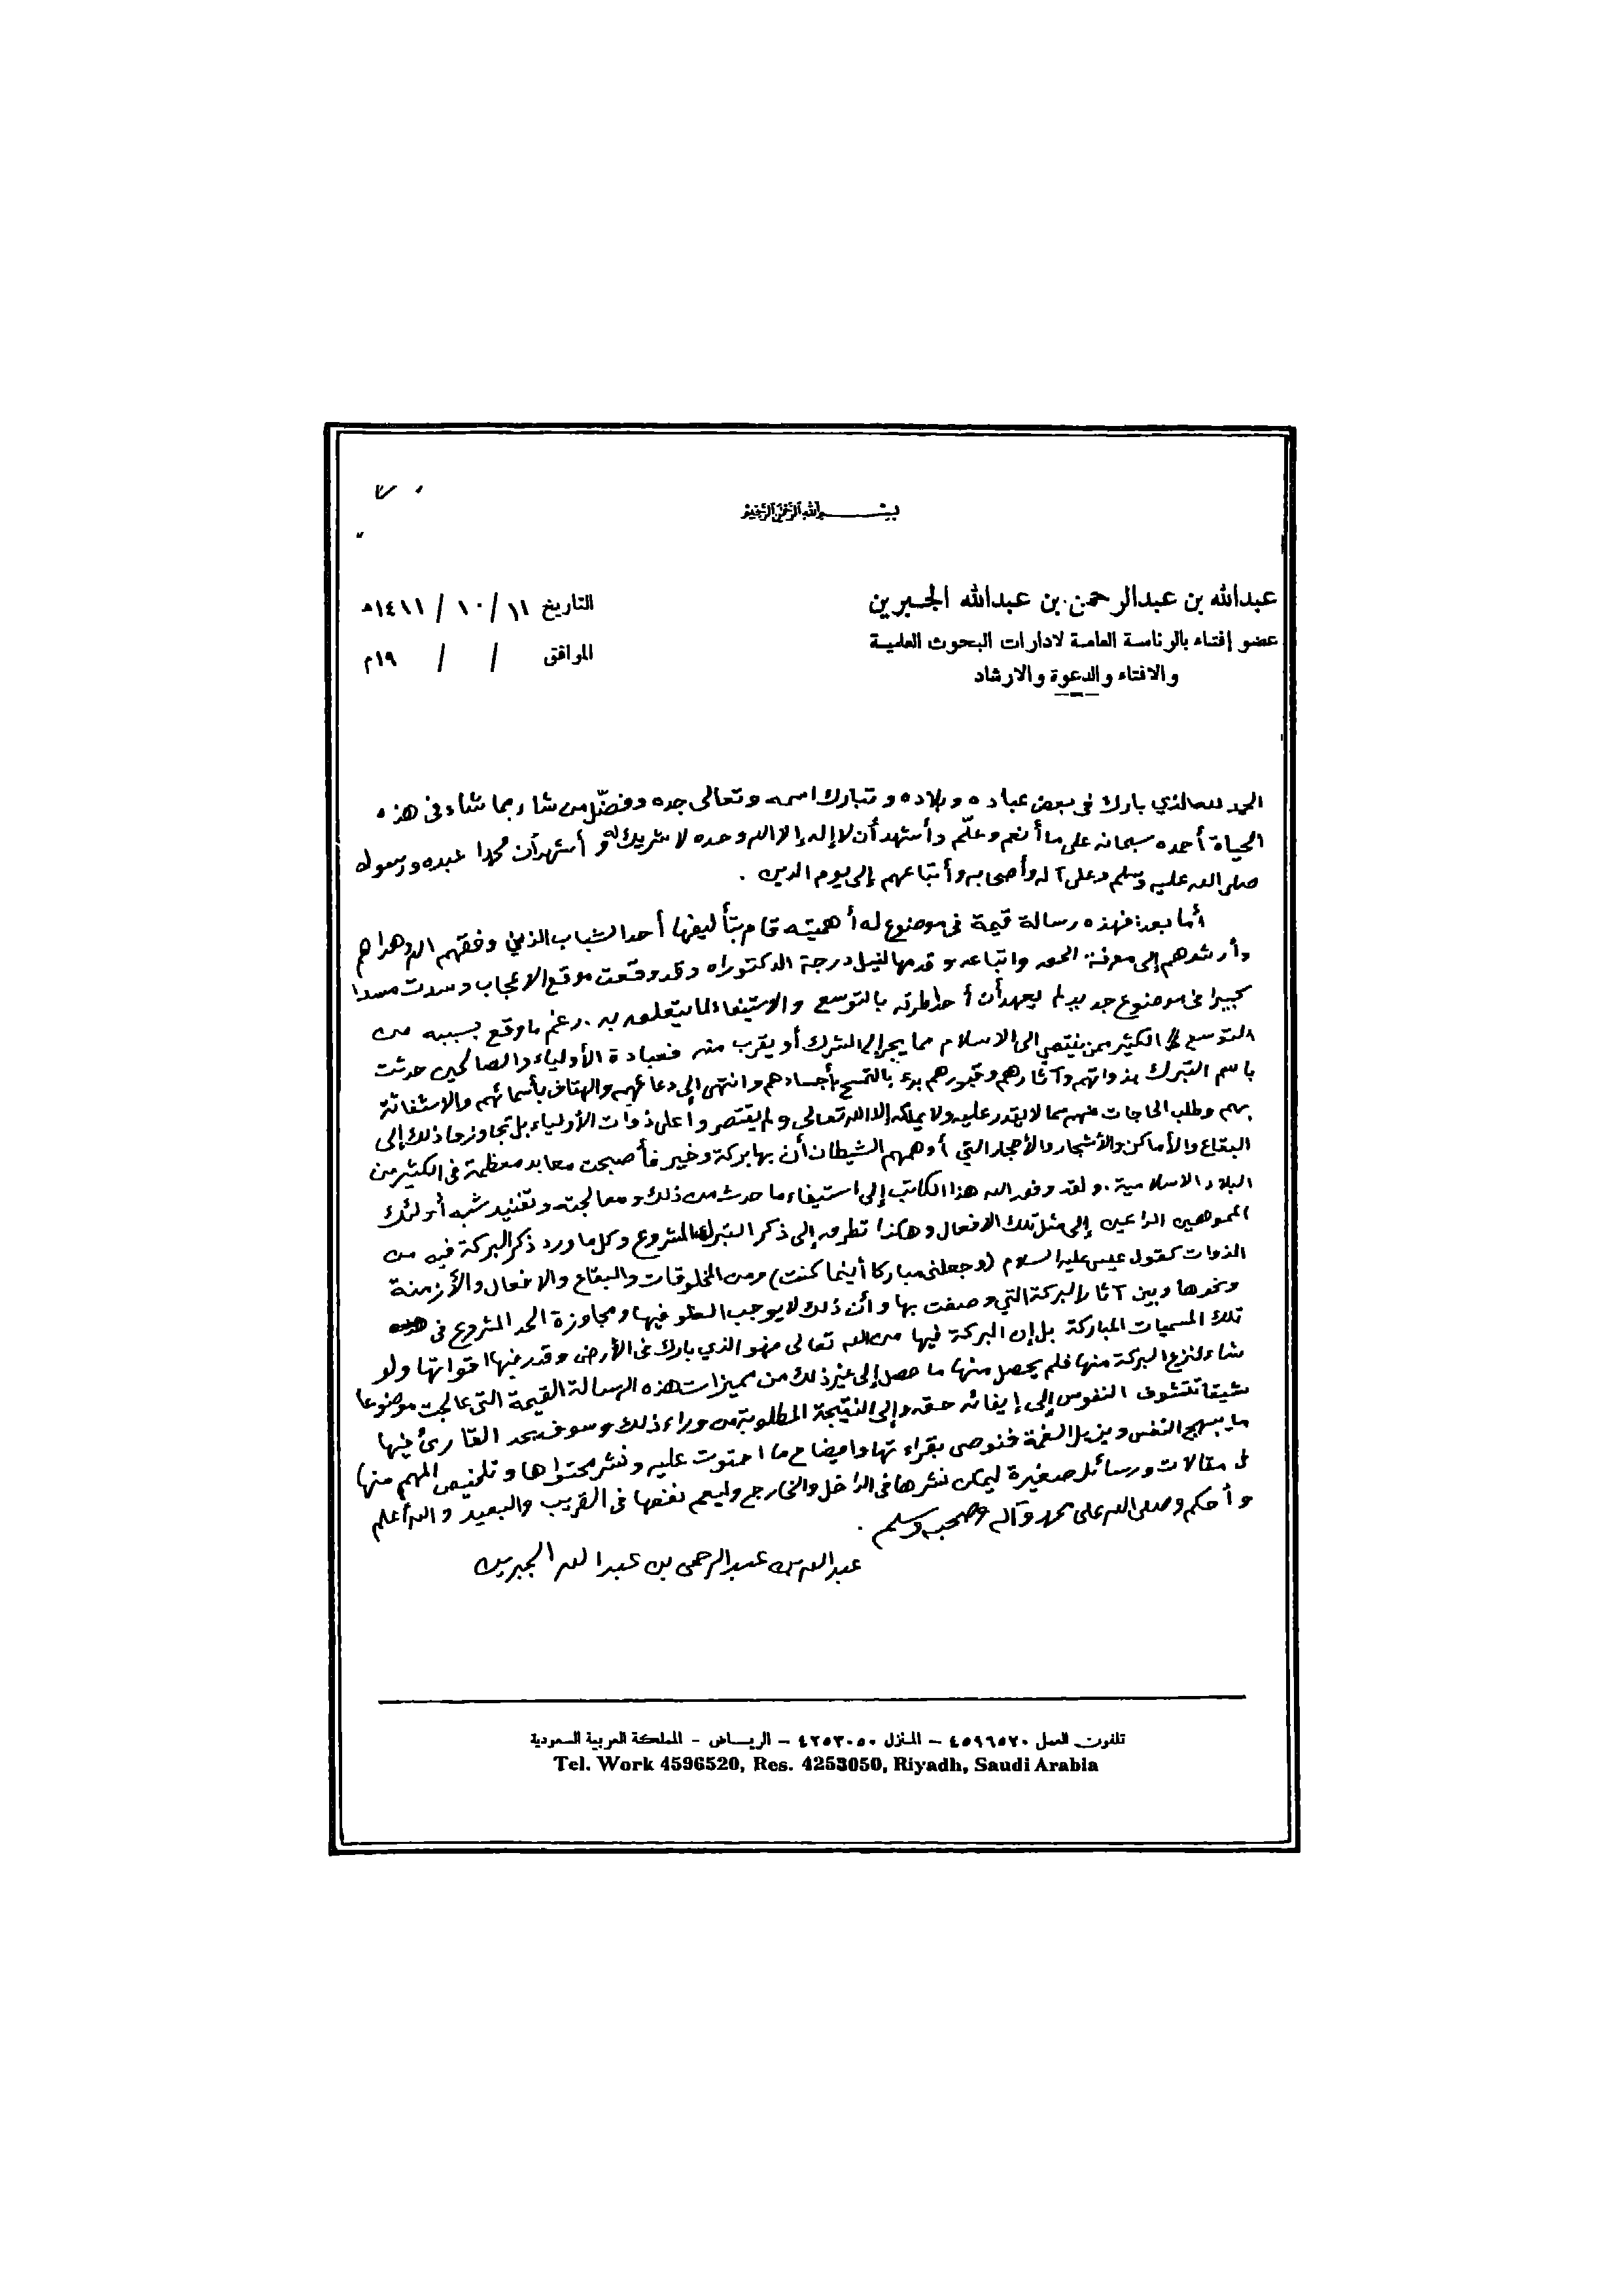 بسم الله الرحمن الرحيم
عبدالله بن عبدالرحمن بن عبدالله الجبرين
عضو إفتاء بالرئاسة العامة لادارات البحوث العلمية
والافتاء والدعوة والارشاد
التاريخ ١١ / ١٠ / ١٤١١هـ
الموافق / / ١٩م
الحمد لله الذي بارك في بعض عباده وبلاده وتبارك اسمه وتعالى جده وفضّل من شاء بما شاء في هذه
الحياة أحمده سبحانه على ما أنعم وعلّم وأشهد أن لا إله إلا الله وحده لا شريك له وأشهد أن محمدا عبده ورسوله
صلى الله عليه وسلم وعلى آله وأصحابه وأتباعهم إلى يوم الدين .
أما بعد: فهذه رسالة قيمة في موضوع له أهميته قام بتأليفها أحد الشباب الذين وفقهم الله وهداهم
وأرشدهم إلى معرفة الحق واتباعه وقدمها لنيل درجة الدكتوراه وقد وقعت موقع الإعجاب وسدت مسدا
كبيرا في موضوع جديد لم يعهد أن أحدا طرقه بالتوسع والاستيفاء لما يتعلق به . رغم ما وقع بسببه من
التوسع الكثير ممن ينتمي الى الاسلام مما يجر إلى الشرك أو يقرب منه فعبادة الأولياء والصالحين حدثت
باسم التبرك بذواتهم وآثارهم وقبورهم بدء بالتمسح بأجسادهم وانتهى إلى دعائهم والهتاف بأسمائهم والاستغاثة
بهم وطلب الحاجات منهم مما لا يقدر عليه ولا يملكه إلا الله تعالى ولم يقتصروا على ذوات الأولياء بل تجاوزوا ذلك إلى
البقاع والأماكن والأشجار والأحجار التي أوهمهم الشيطان أن بها بركة وخير فأصبحت معابد معظمة في الكثير من
البلاد الاسلامية . ولقد وفق الله هذا الكاتب إلى استيفاء ما حدث من ذلك ومعالجته وتفنيد شبه أولئك
المموهين الداعين إلى مثل تلك الأفعال وهكذا تطرق إلى ذكر التبرك المشروع وكل ما ورد ذكر البركة فيه من
الذوات كقول عيسى عليه السلام (وجعلني مباركا أينما كنت) ومن المخلوقات والبقاع والافعال والأزمنة
ونحوها وبين آثار البركة التي وصفت بها وأن ذلك لا يوجب الغلو فيها ومجاوزة الحد المشروع في هذه
تلك المسميات المباركة بل إن البركة فيها من الله تعالى فهو الذي بارك في الأرض وقدر فيها اقواتها ولو
شاء لنزع البركة منها فلم يحصل منها ما حصل إلى غير ذلك من مميزات هذه الرسالة القيمة التي عالجت موضوعا
شيقا تتشوف النفوس إلى إيفائه حقه وإلى النتيجة المطلوبة من وراء ذلك وسوف يجد القارئ فيها
ما يبهج النفس ويزيل الغمة فنوصي بقراءتها وايضاح ما احتوت عليه ونشر محتواها وتلخيص المهم منها
في مقالات ورسائل صغيرة ليمكن نشرها في الداخل والخارج وليعم نفعها في القريب والبعيد والله أعلم
وأحكم وصلى الله على محمد وآله وصحبه وسلم .
عبدالله بن عبدالرحمن بن عبدالله الجبرين
تلفون العمل ٤٥٩٦٥٢٠ – المنزل ٤٢٥٣٠٥٠ – الرياض – المملكة العربية السعودية
Tel. Work 4596520, Res. 4253050, Riyadh, Saudi Arabia